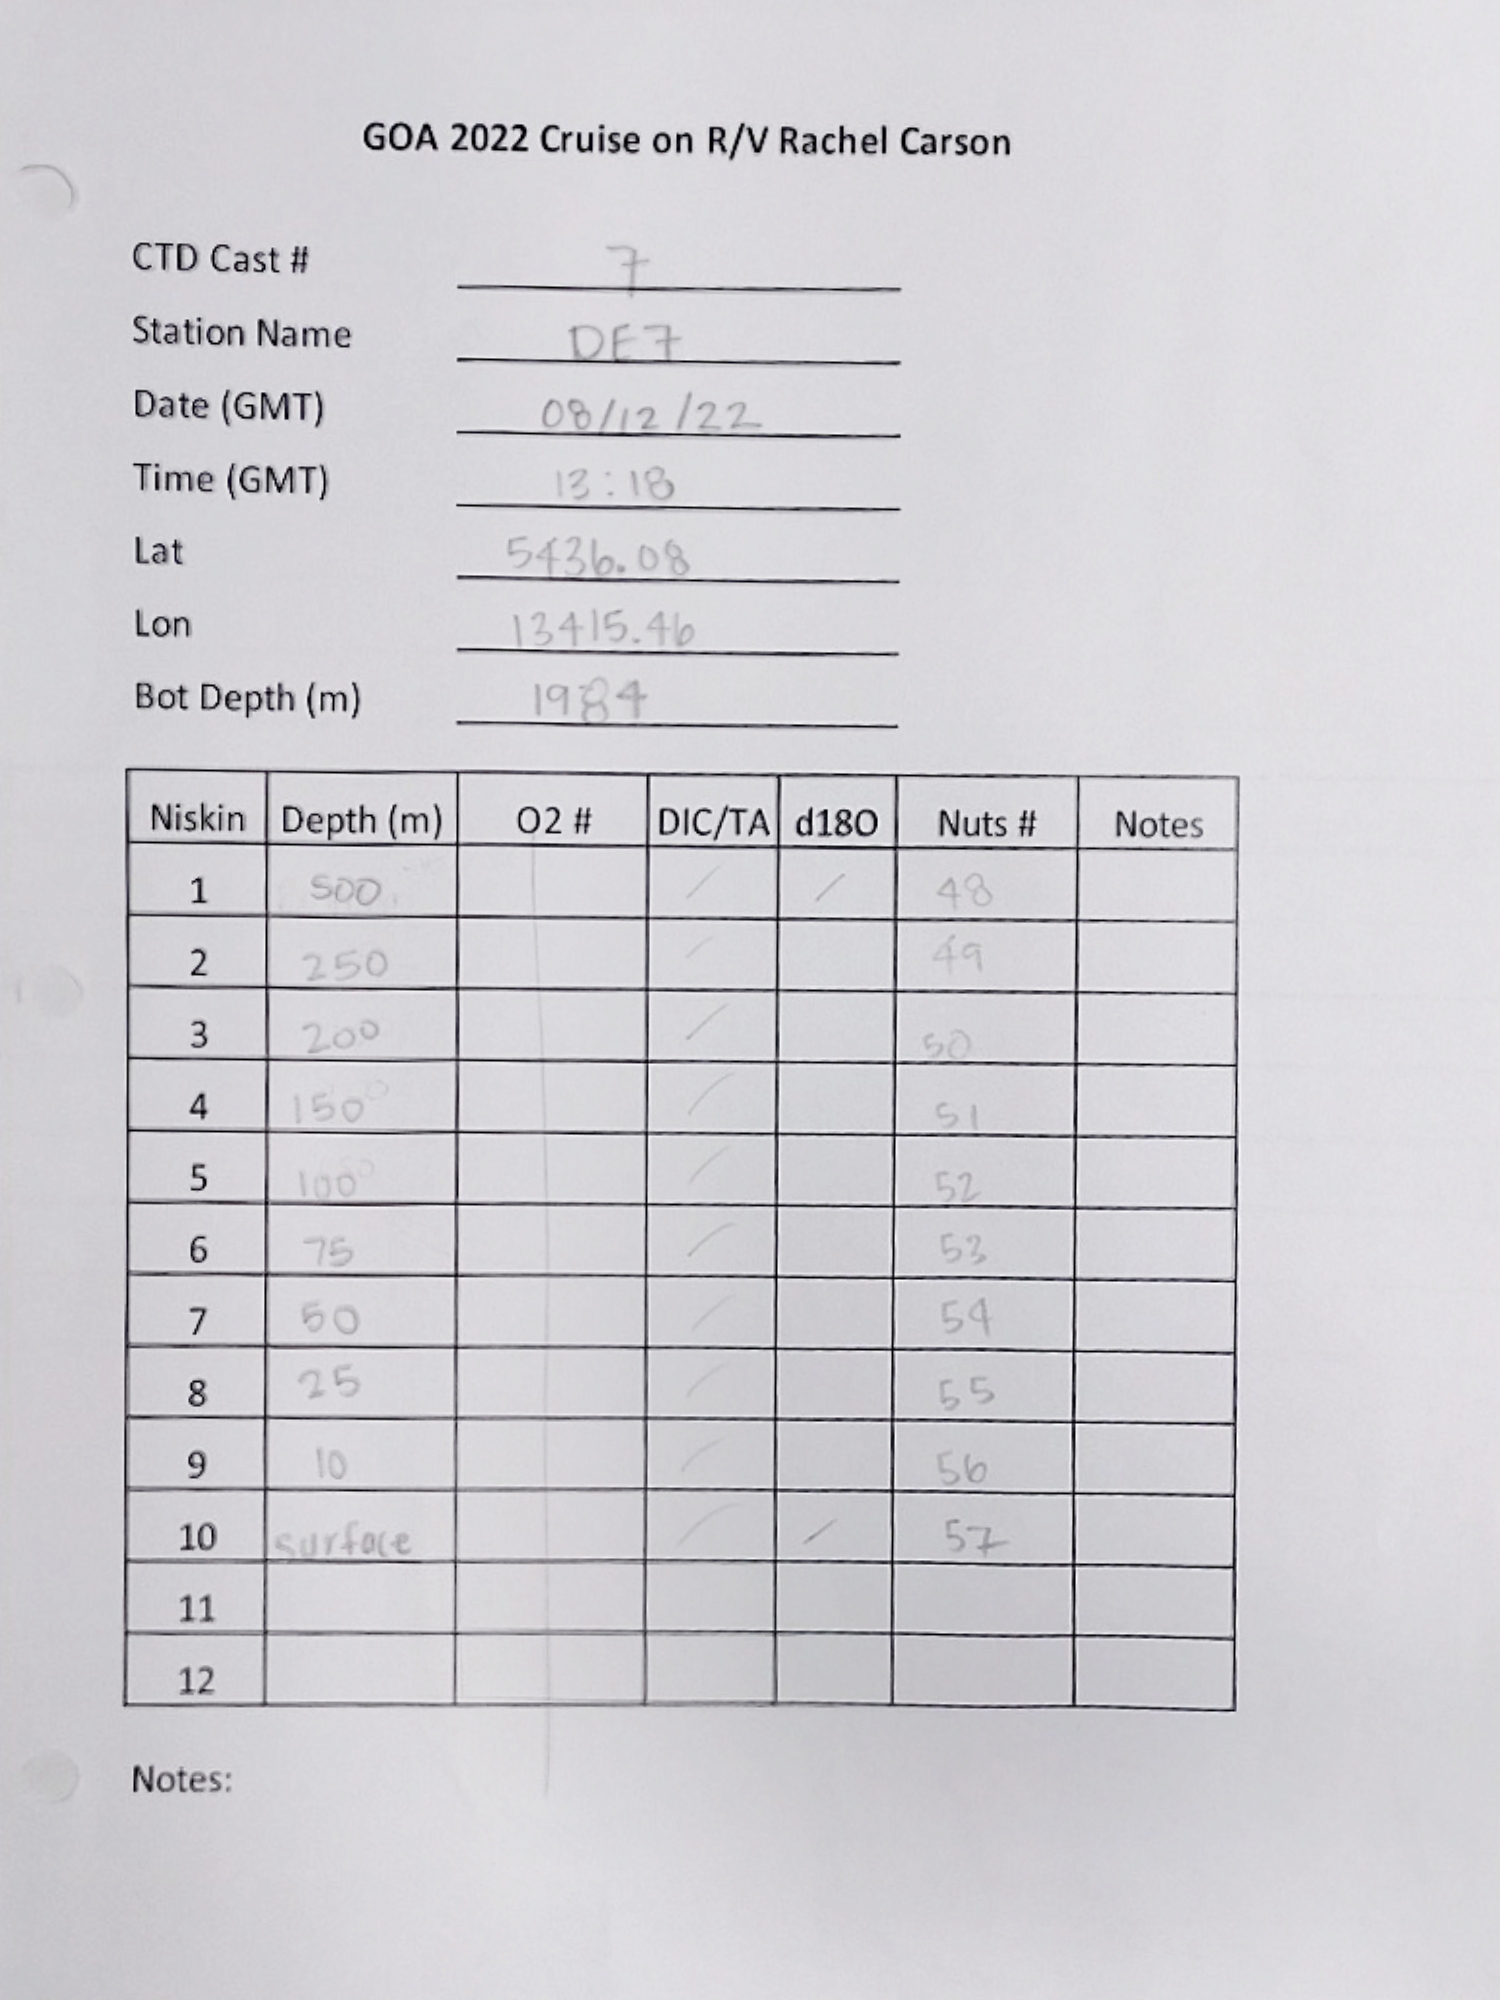 GOA 2022 Cruise on R/V Rachel Carson
CTD Cast # 7
Station Name DE7
Date (GMT) 08/12/22
Time (GMT) 13:18
Lat 5436.08
Lon 13415.46
Bot Depth (m) 1984
Niskin Depth (m) O2 # DIC/TA d18O Nuts # Notes
1 500 / / 48
2 250 / 49
3 200 / 50
4 150 / 51
5 100 / 52
6 75 / 53
7 50 / 54
8 25 / 55
9 10 / 56
10 surface / / 57
11
12
Notes: